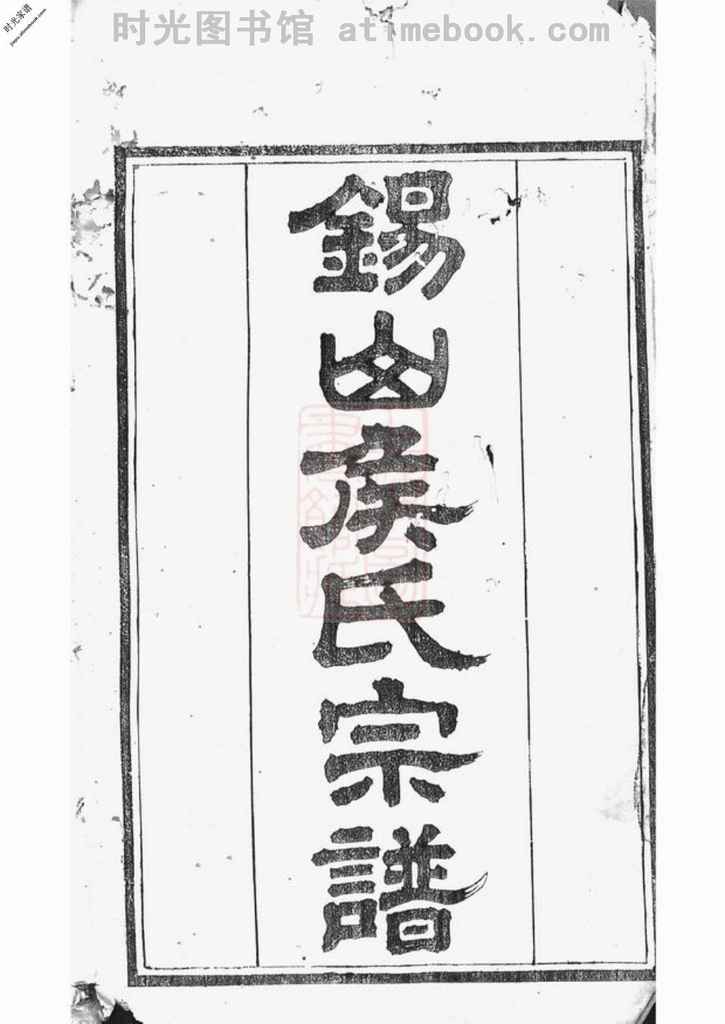 时光图书馆 atimebook.com
时光家谱
錫山矦氏宗譜